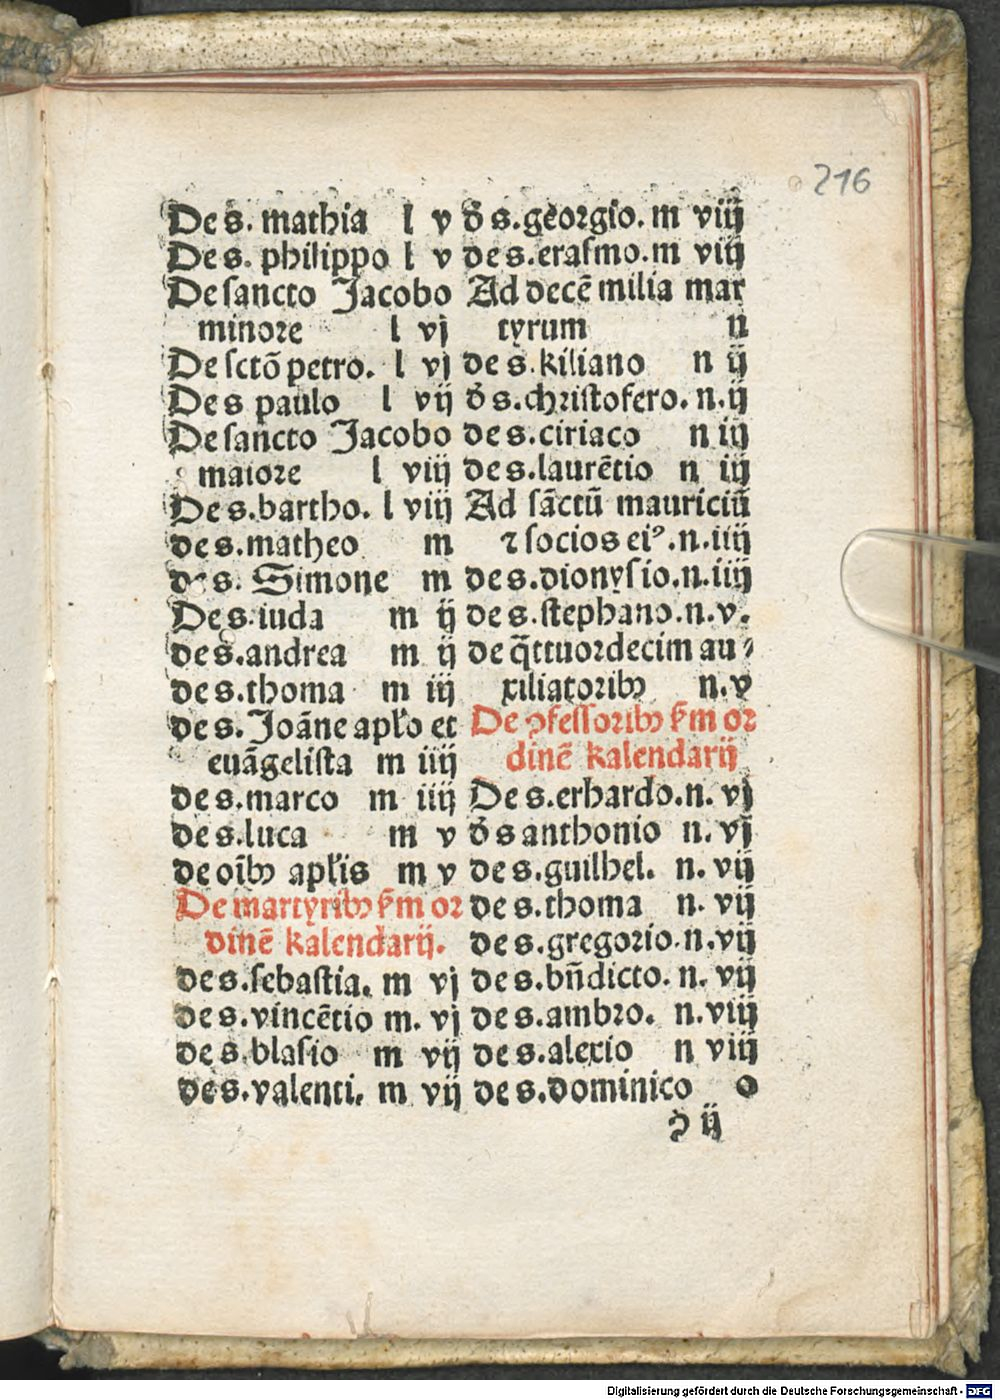 216
De s. mathia l v
De s. philippo l v
De sancto Jacobo
minore l vj
De sctō petro. l vj
De s paulo l vij
De sancto Jacobo
maiore l viij
De s. bartho. l viij
de s. matheo m
de s. Simone m
De s. iuda m ij
de s. andrea m ij
de s. thoma m iij
de s. Joāne apl'o et
euāgelista m iiij
de s. marco m iiij
de s. luca m v
de oībꝫ apl'is m v
De martyribꝫ ẜm or
dinē kalendarij.
de s. sebastia. m vj
de s. vincētio m. vj
de s. blasio m vij
de s. valenti. m vij
d̕ s. georgio. m viij
de s. erasmo. m viij
Ad decē milia mar
tyrum n
de s. kiliano n ij
d̕ s. christofero. n. ij
de s. ciriaco n iij
de s. laurētio n iij
Ad sāctū mauriciū
⁊ socios eiꝰ. n. iiij
de s. dionysio. n. iiij
de s. stephano. n. v.
de q̄ttuordecim au⸗
xiliatoribꝫ n. v
De ꝯfessoribꝫ ẜm or
dinē kalendarij
De s. erhardo. n. vj
d̕ s anthonio n. vj
de s. guilhel. n. vij
de s. thoma n. vij
de s. gregorio. n. vij
de s. bn̄dicto. n. vij
de s. ambro. n. viij
de s. alexio n viij
de s. dominico o
ꝯ ij
Digitalisierung gefördert durch die Deutsche Forschungsgemeinschaft - DFG